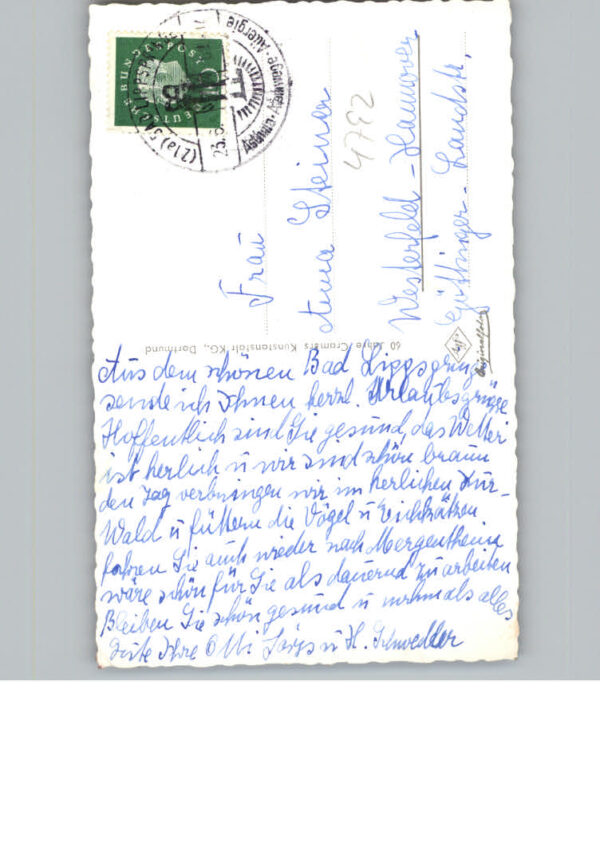 Frau
Anna Steiner
Westerfeld - Hannover
Göttinger - Landstr.
4792
DEUTSCHE BUNDESPOST
23.6.
Asthma Allergie
60 Jahre Cramers Kunstanstalt KG., Dortmund
Aus dem schönen Bad Lippspringe
sende ich Ihnen herzl. Urlaubsgrüße
Hoffentlich sind Sie gesund, das Wetter
ist herlich u wir sind schön braun
den Tag verbringen wir im herlichen Kur-
Wald u füttern die Vögel u Eichkätzen
fahren Sie auch wieder nach Mergentheim
wäre schön für Sie als dauernd zu arbeiten
Bleiben Sie schön gesund u nochmals alles
Gute Ihre u H. Schwedler